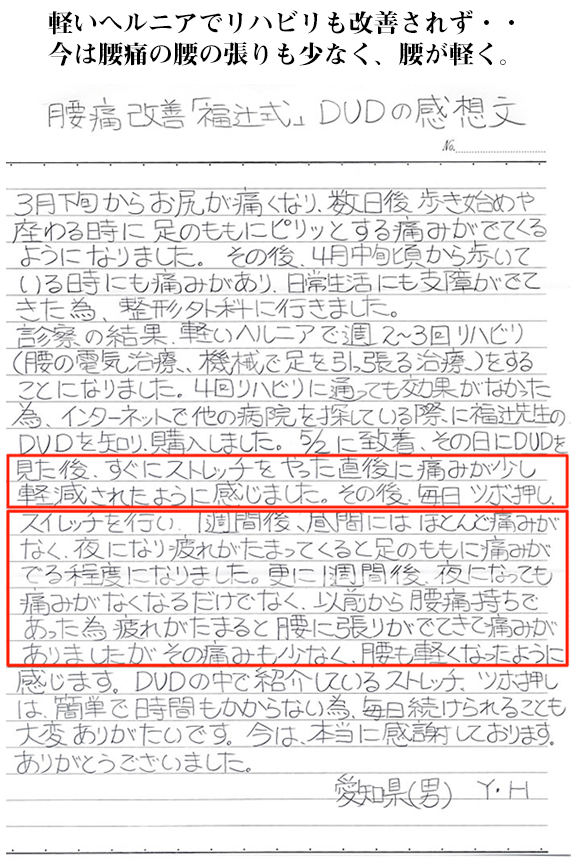 軽いヘルニアでリハビリも改善されず・・
今は腰痛の腰の張りも少なく、腰が軽く。
腰痛改善「福辻式」DVDの感想文
No.
3月下旬からお尻が痛くなり、数日後 歩き始めや
座わる時に 足のももにピリッとする痛みがでてくる
ようになりました。その後、4月中旬頃から歩いて
いる時にも痛みがあり、日常生活にも支障がでて
きた為、整形外科に行きました。
診察の結果、軽いヘルニアで週2〜3回リハビリ
(腰の電気治療、機械で足を引っ張る治療、)をする
ことになりました。4回リハビリに通っても効果がなかった
為、インターネットで他の病院を探している際に福辻先生の
DVDを知り、購入しました。5/2に到着、その日にDVDを
見た後、すぐにストレッチをやった直後に痛みが少し
軽減されたように感じました。その後、毎日 ツボ押し、
ストレッチを行い、1週間後、昼間には ほとんど痛みが
なく、夜になり疲れがたまってくると足のももに痛みが
でる程度になりました。更に1週間後、夜になっても
痛みがなくなるだけでなく、以前から腰痛持ちで
あった為 疲れがたまると 腰に張りがでてきて痛みが
ありましたが その痛みも少なく、腰も軽くなったように
感じます。DVDの中で紹介しているストレッチ、ツボ押し
は、簡単で時間もかからない為、毎日続けられることも
大変ありがたいです。今は、本当に感謝しております。
ありがとうございました。
愛知県(男) Y・H